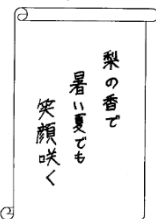 梨の香で
暑い夏でも
笑顔咲く